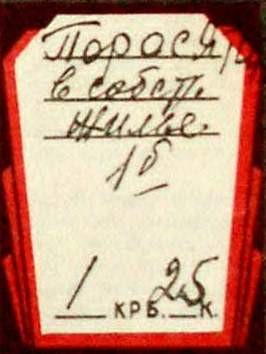 Порося
в собст.
жилье.
1б
1 крб. 25 к.